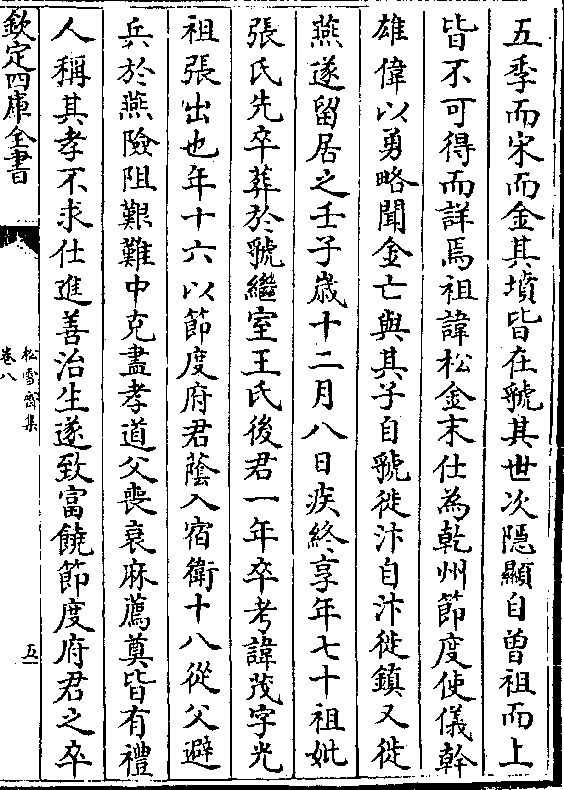 五季而宋而金其墳皆在虢其世次隱顯自曽祖而上
皆不可得而詳焉祖諱松金末仕為乾州節度使儀幹
雄偉以勇略聞金亡與其子自虢徙汴自汴徙鎮又徙
燕遂留居之壬子歳十二月八日疾終享年七十祖妣
張氏先卒葬於虢繼室王氏後君一年卒考諱茂字光
祖張出也年十六以節度府君蔭入宿衛十八從父避
兵於燕險阻艱難中克盡孝道父喪衰麻薦奠皆有禮
人稱其孝不求仕進善治生遂致富饒節度府君之卒
欽定四庫全書
松雪齋集
卷八
五